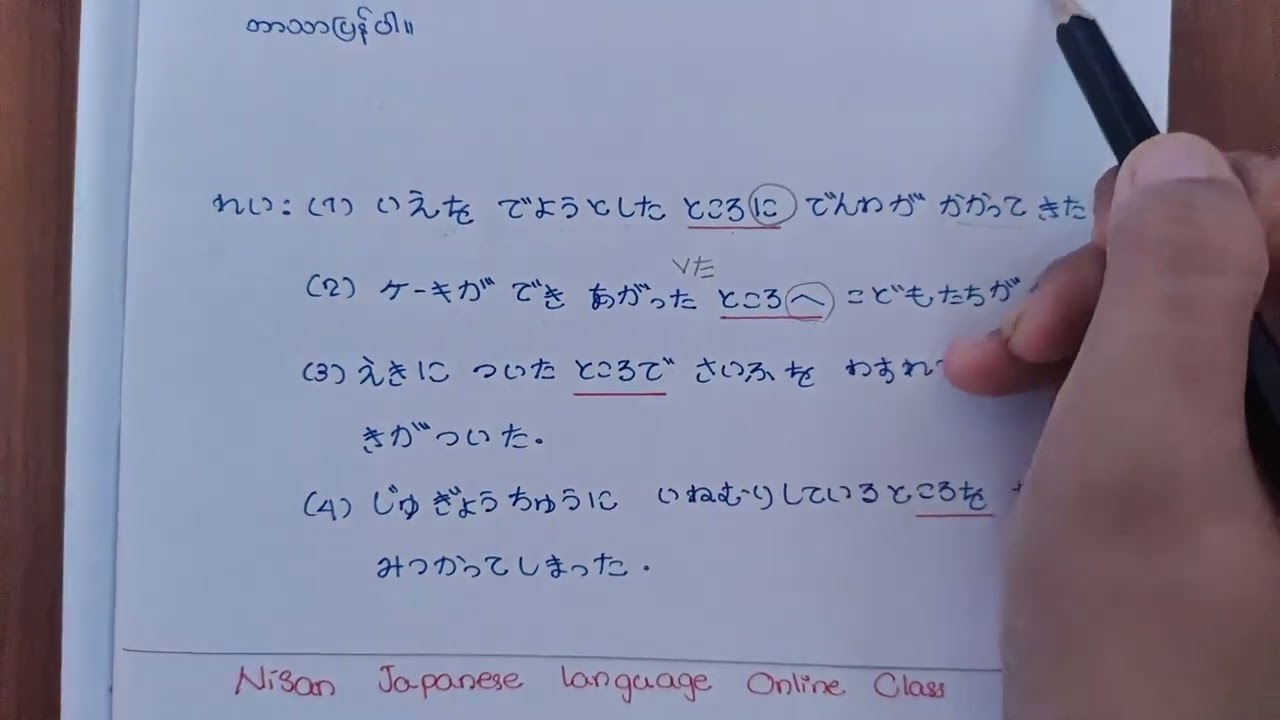 ဘာသာပြန်ပါ။
れい: (1) いえを でようとした ところに でんわが かかって きた
Vた
(2) ケーキが でき あがった ところへ こどもたちが
(3) えきに ついた ところで さいふを わすれ
きが ついた.
(4) じゅぎょうちゅうに いねむりしているところを
みつかってしまった.
Nisan Japanese language Online Class